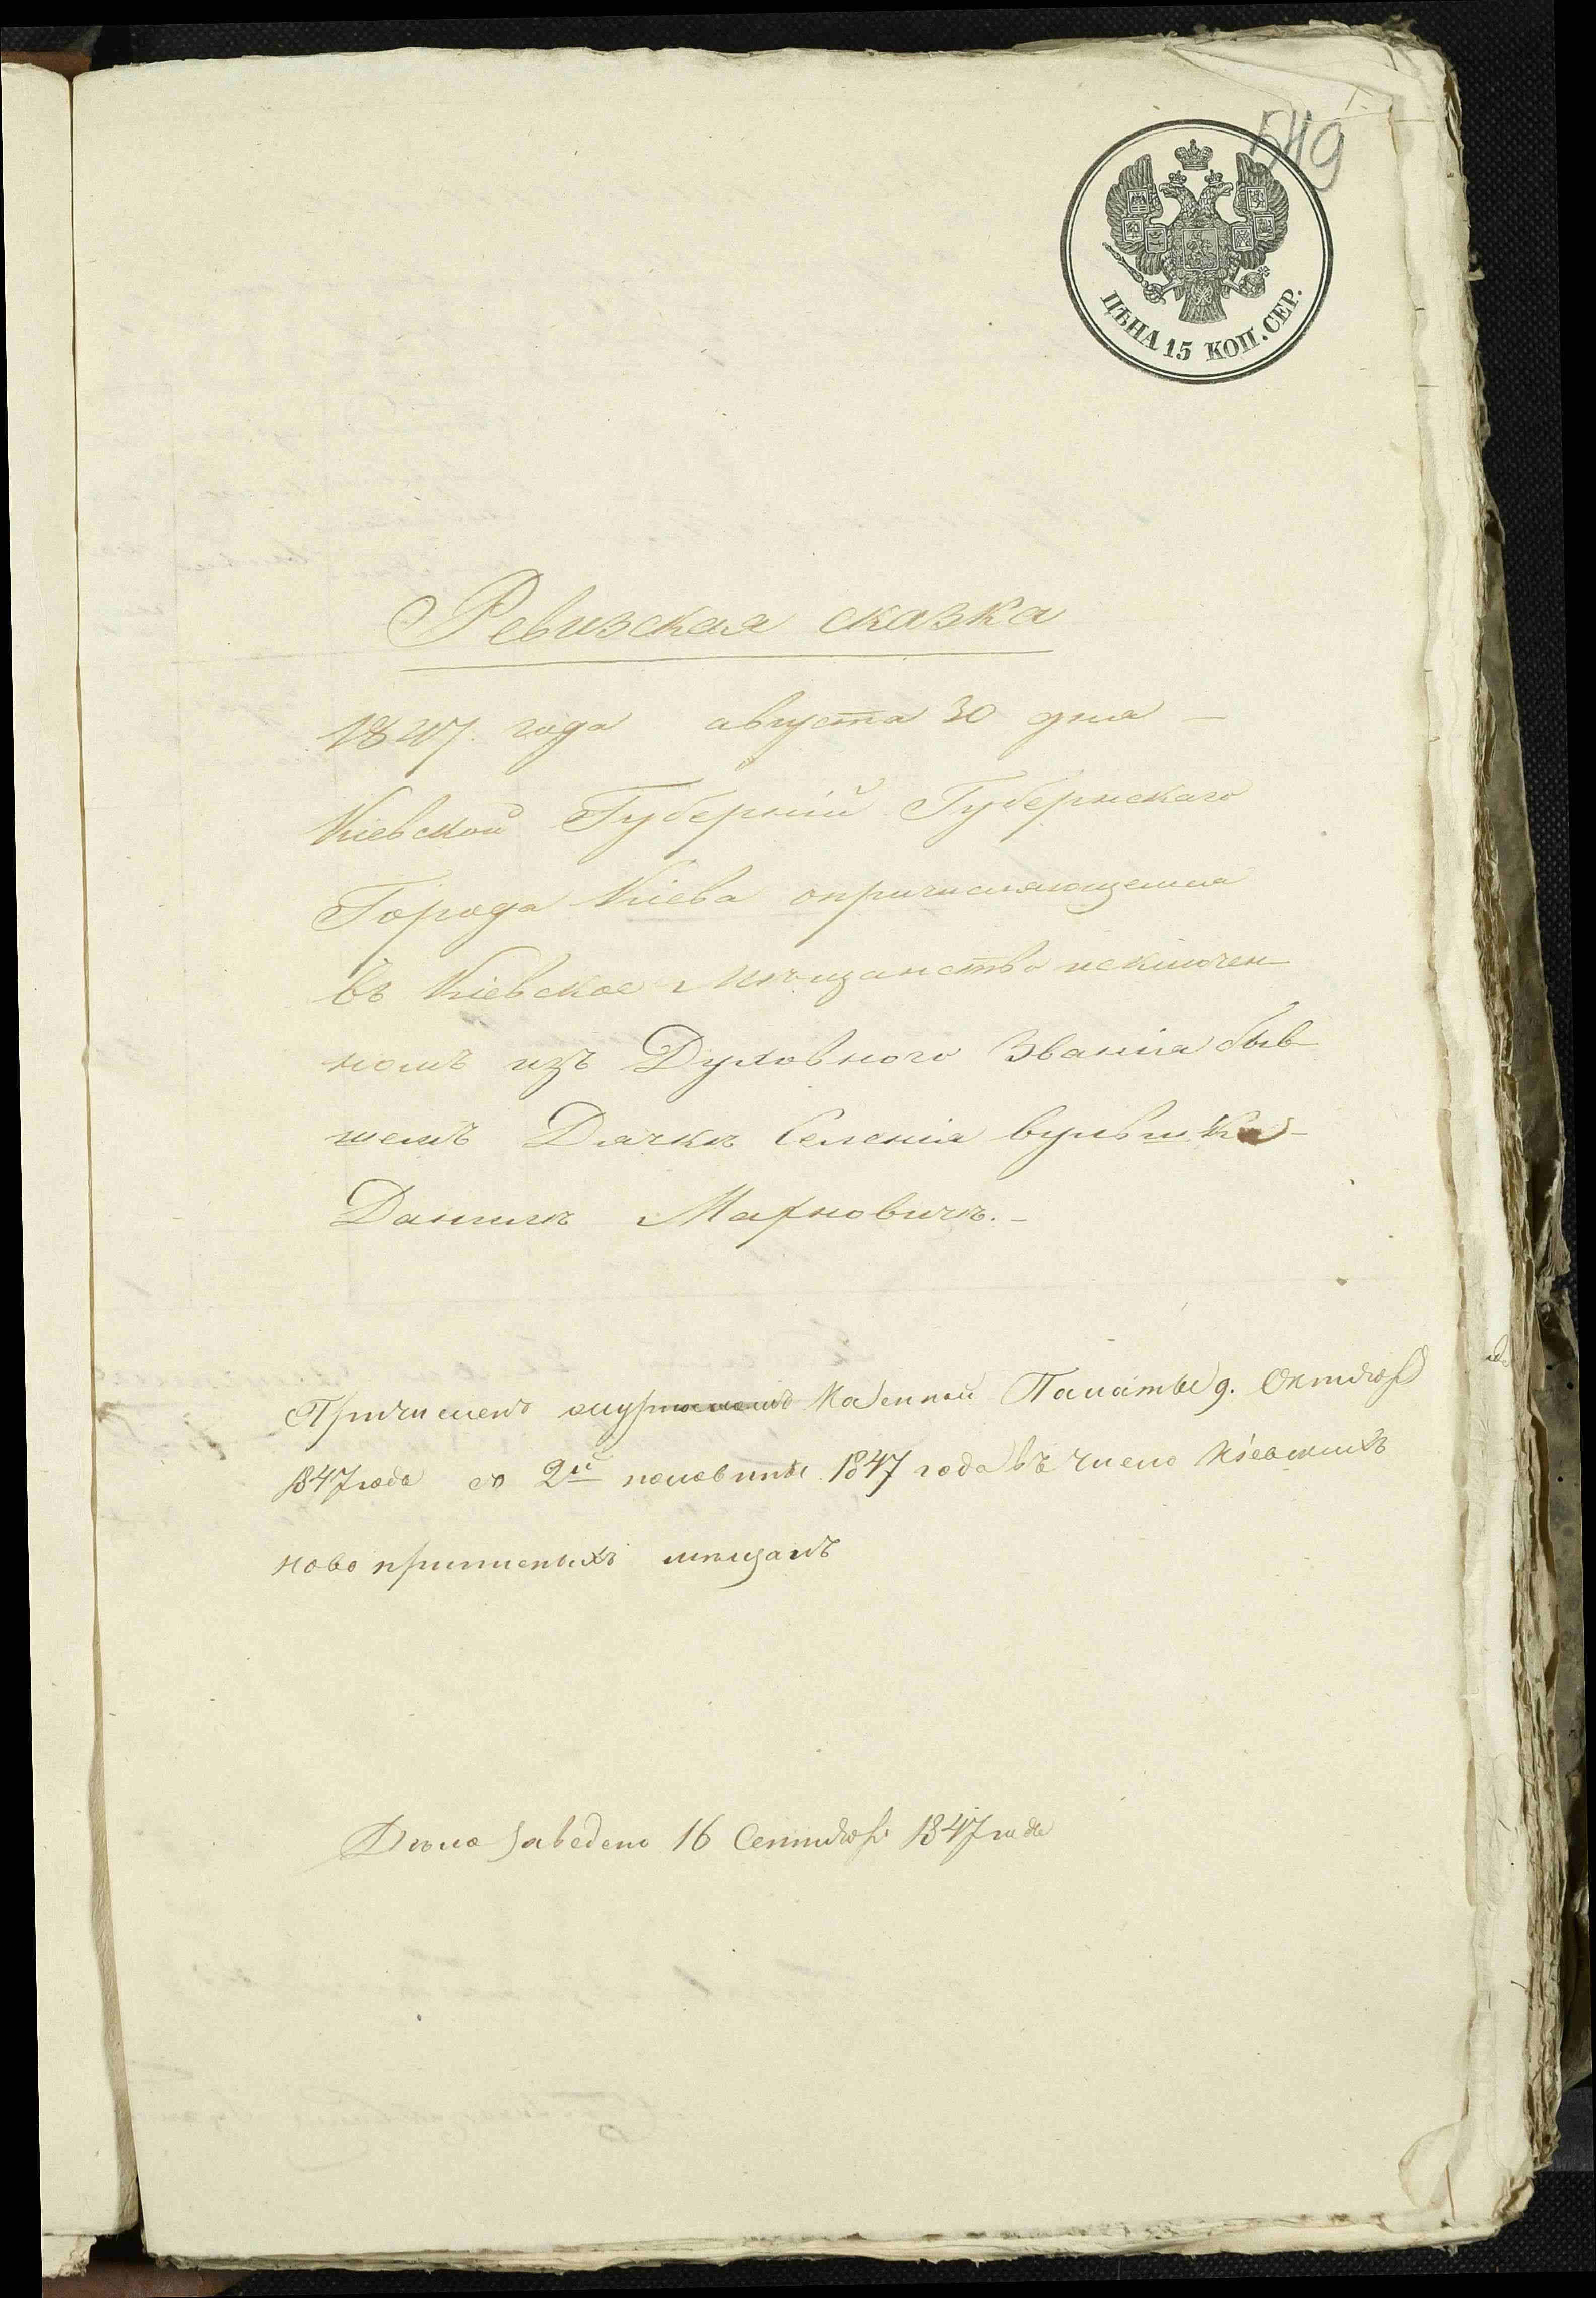 549
ЦѢНА 15 КОП. СЕР.
Ревизская сказка
1847. года августа 30 дня –
Кіевской Губерніи Губернскаго
Города Кіева опричисляющемся
Въ Кіевское Мѣщанство исключен-
номъ изъ Духовного Званія быв-
шемъ Дячкѣ Селенія
Данилѣ Махновичѣ. –
Причисленъ Казенной Палаты 9. Октября
1847 года со 2й половины 1847 года въ число Кіевскихъ
ново мѣщанъ
Дѣло заведено 16 Сентября 1847 года